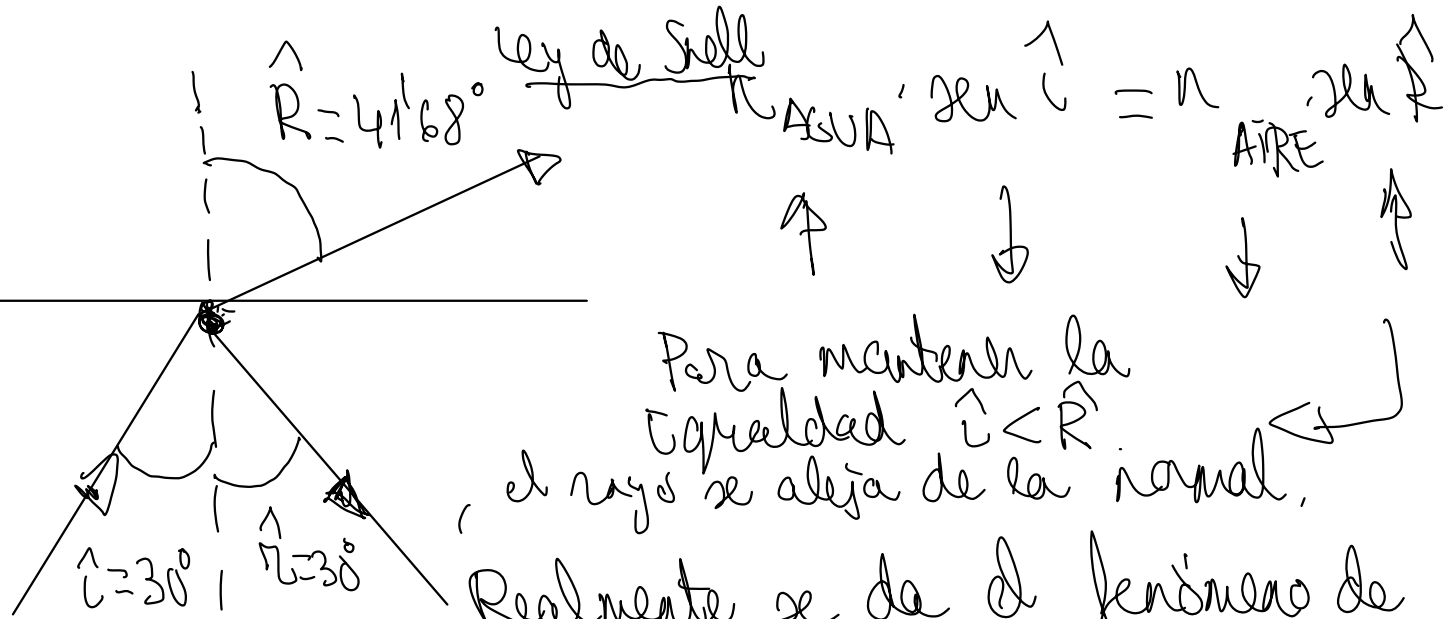 Ley de Snell
n AGUA · sen î = n AIRE · sen R̂
R̂ = 41'68°
Para mantener la
igualdad î < R̂
, el rayo se aleja de la normal.
î = 30° r̂ = 30°
Realmente se da el fenómeno de